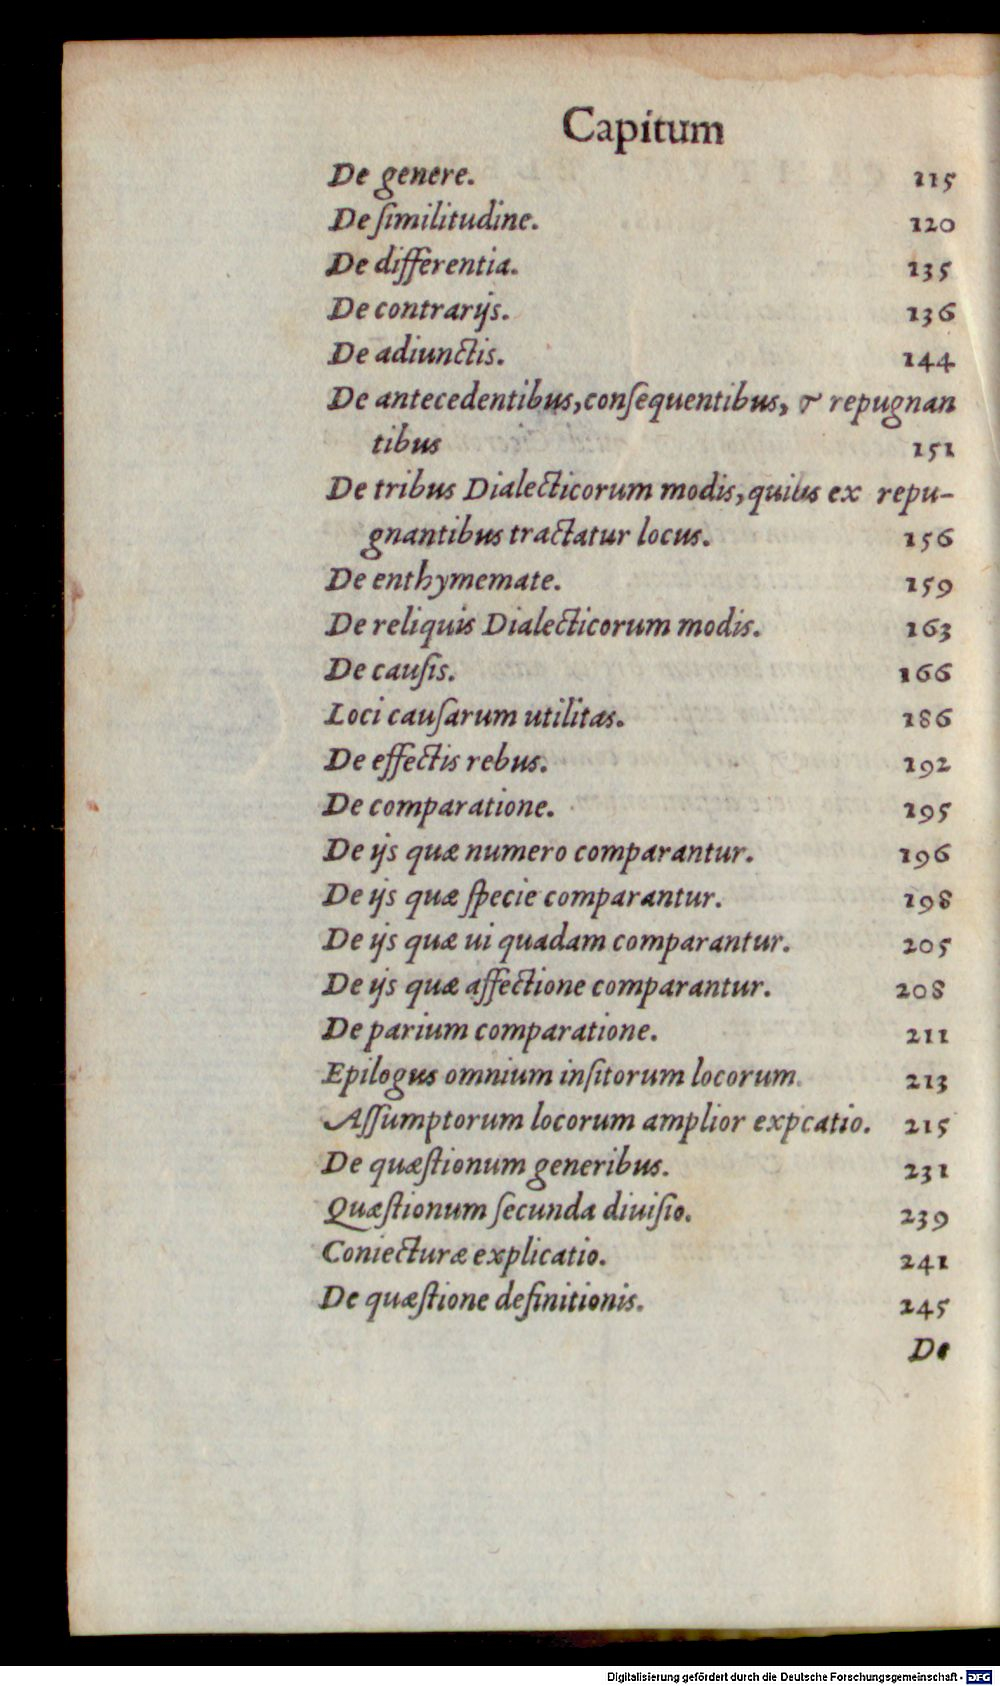 Capitum
De genere. 115
De ſimilitudine. 120
De differentia. 135
De contrarijs. 136
De adiunctis. 144
De antecedentibus, conſequentibus, & repugnan
tibus 151
De tribus Dialecticorum modis, quibs ex repu-
gnantibus tractatur locus. 156
De enthymemate. 159
De reliquis Dialecticorum modis. 163
De cauſis. 166
Loci cauſarum utilitas. 186
De effectis rebus. 192
De comparatione. 195
De ijs quæ numero comparantur. 196
De ijs quæ ſpecie comparantur. 198
De ijs quæ ui quadam comparantur. 205
De ijs quæ affectione comparantur. 208
De parium comparatione. 211
Epilogus omnium inſitorum locorum. 213
Aſſumptorum locorum amplior expcatio. 215
De quæſtionum generibus. 231
Quæſtionum ſecunda diuiſio. 239
Coniecturæ explicatio. 241
De quæſtione definitionis. 245
De
Digitalisierung gefördert durch die Deutsche Forschungsgemeinschaft - DFG